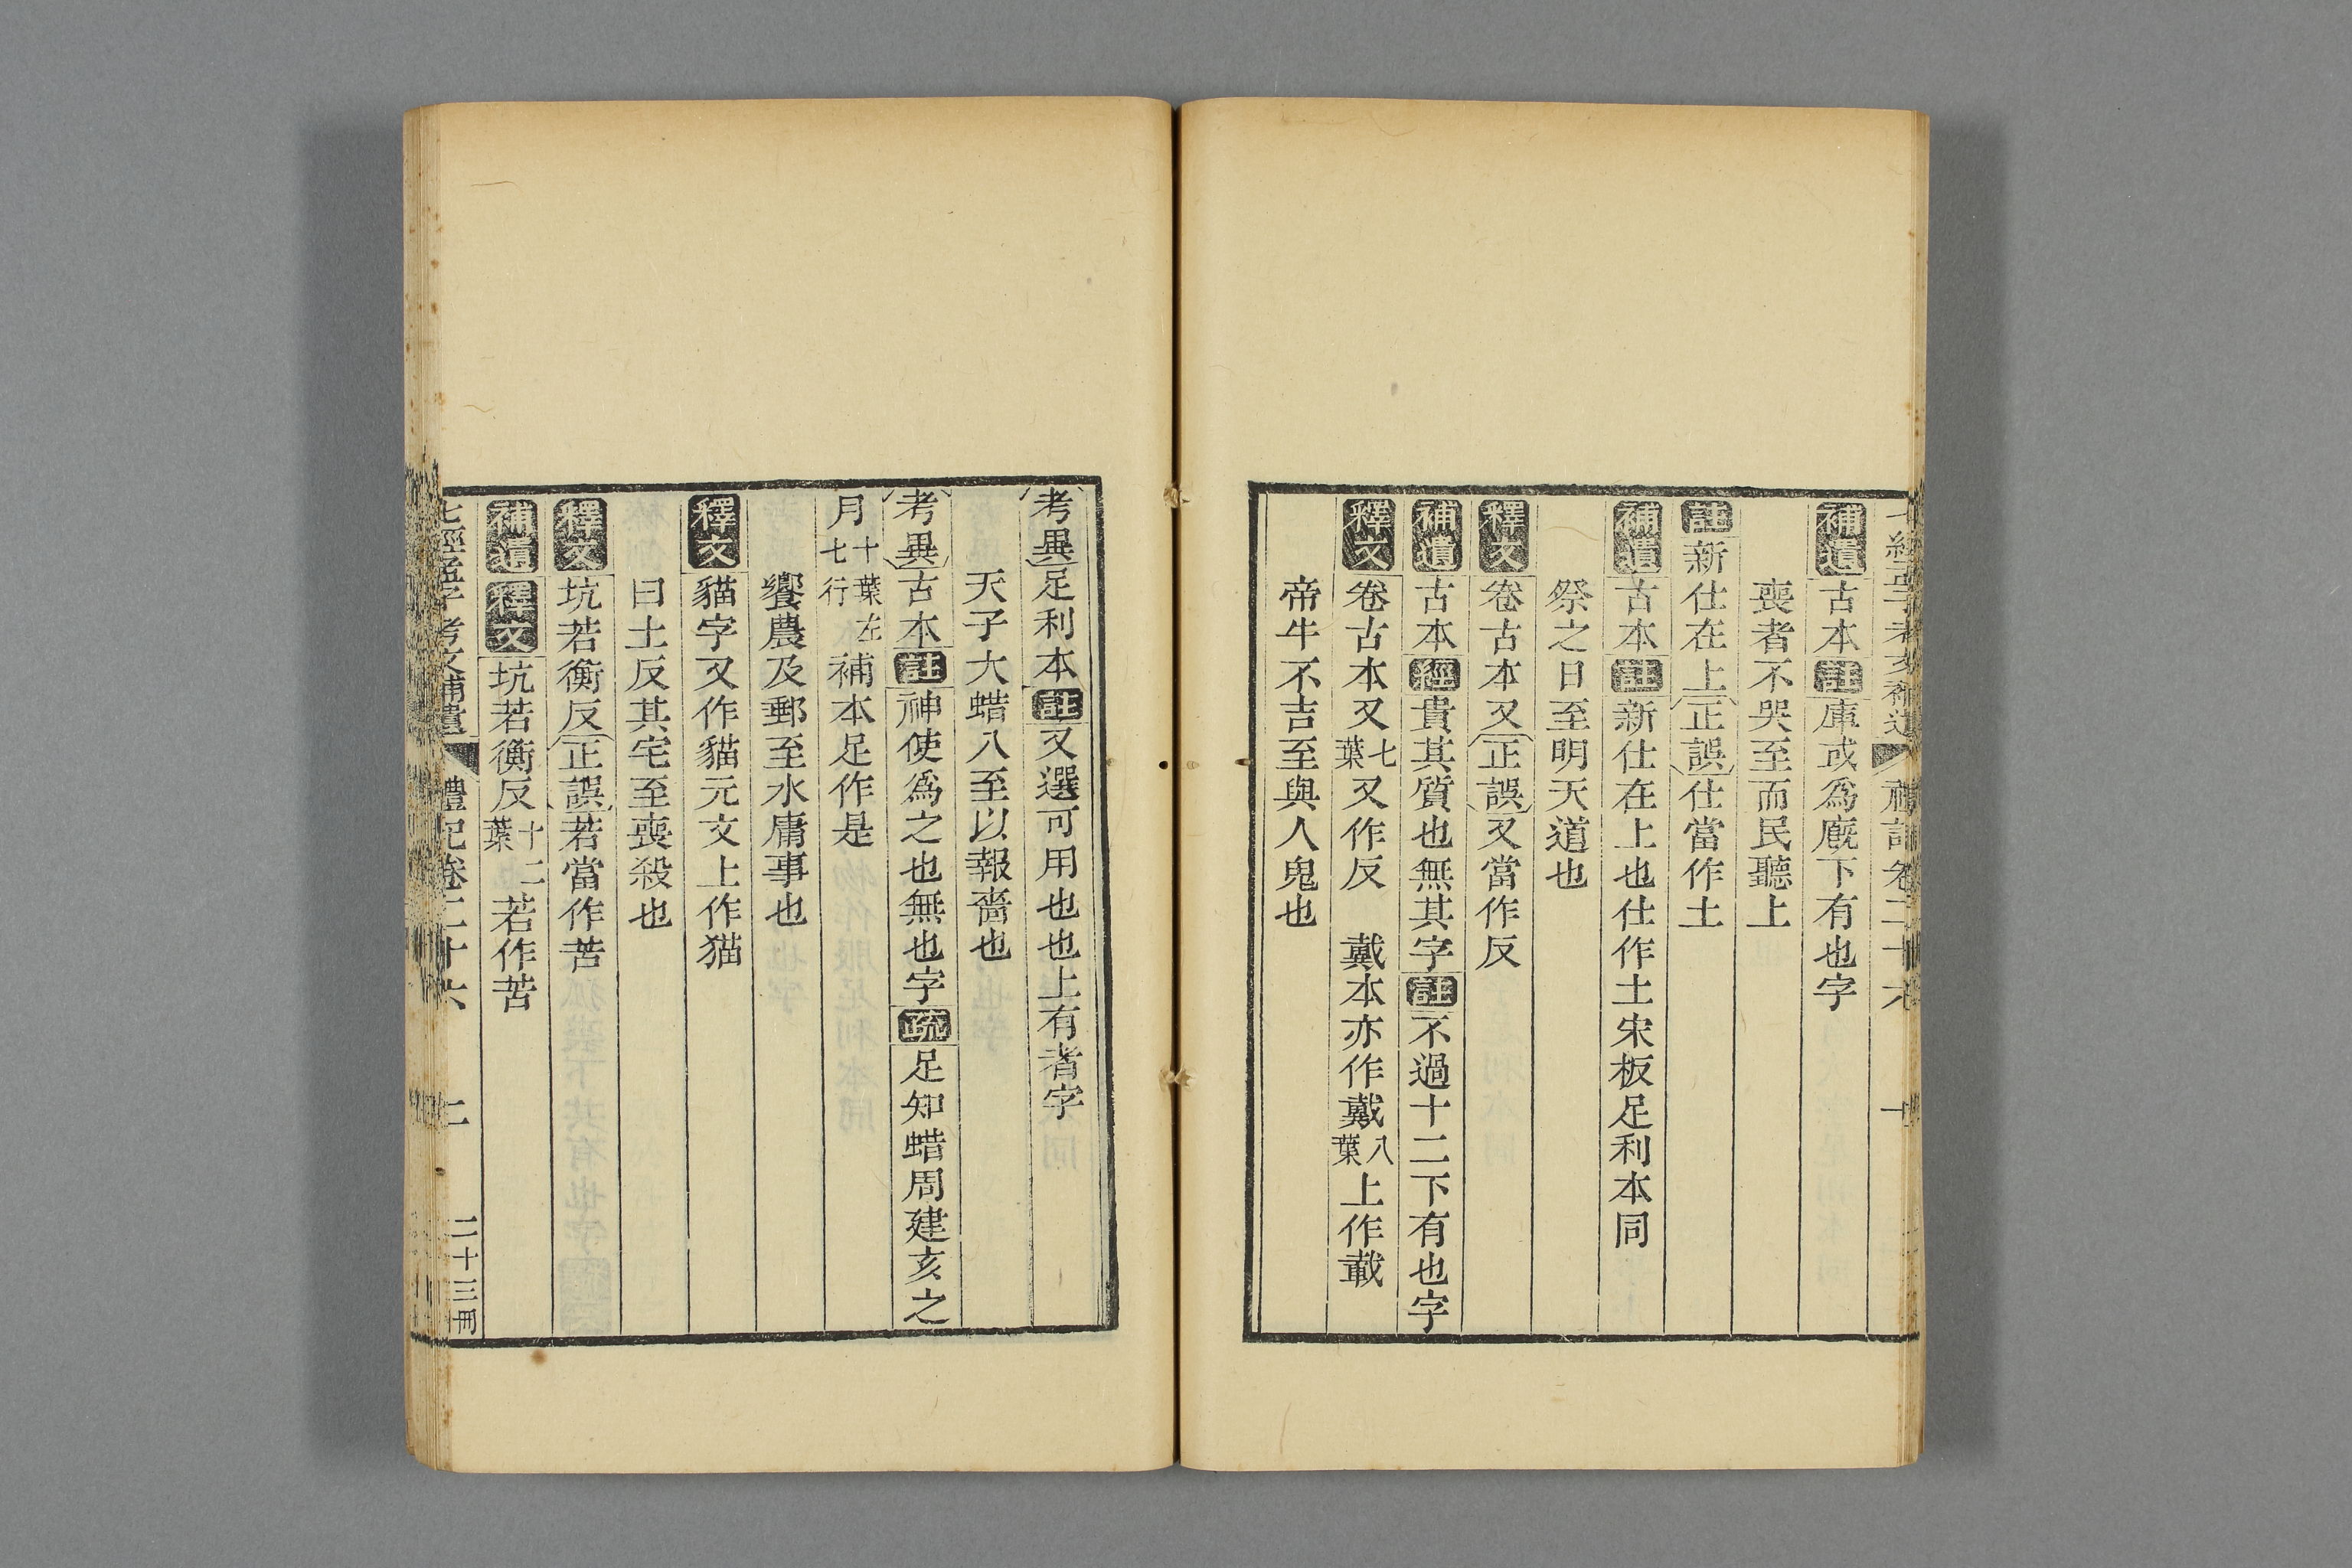 七經孟子考文補遺 禮記卷二十六
補遺 古本註庫或爲廐下有也字
喪者不哭至而民聽上
註新仕在上正誤仕當作土
補遺 古本註新仕在上也仕作土宋板足利本同
祭之日至明天道也
釋文 卷古本又正誤又當作反
補遺 古本經貴其質也無其字註不過十二下有也字
釋文 卷古本又七葉又作反 戴本亦作戴八葉上作載
帝牛不吉至與人鬼也
考異足利本註又選可用也也上有者字
天子大蜡八至以報嗇也
考異古本註神使爲之也無也字疏足知蜡周建亥之
月十葉左七行補本足作是
饗農及郵至水庸事也
釋文 貓字又作貓元文上作猫
曰土反其宅至喪殺也
釋文 坑若衡反正誤若當作苦
補遺 釋文 坑若衡反十二葉若作苦
七經孟子考文補遺 禮記卷二十六 二 二十三冊